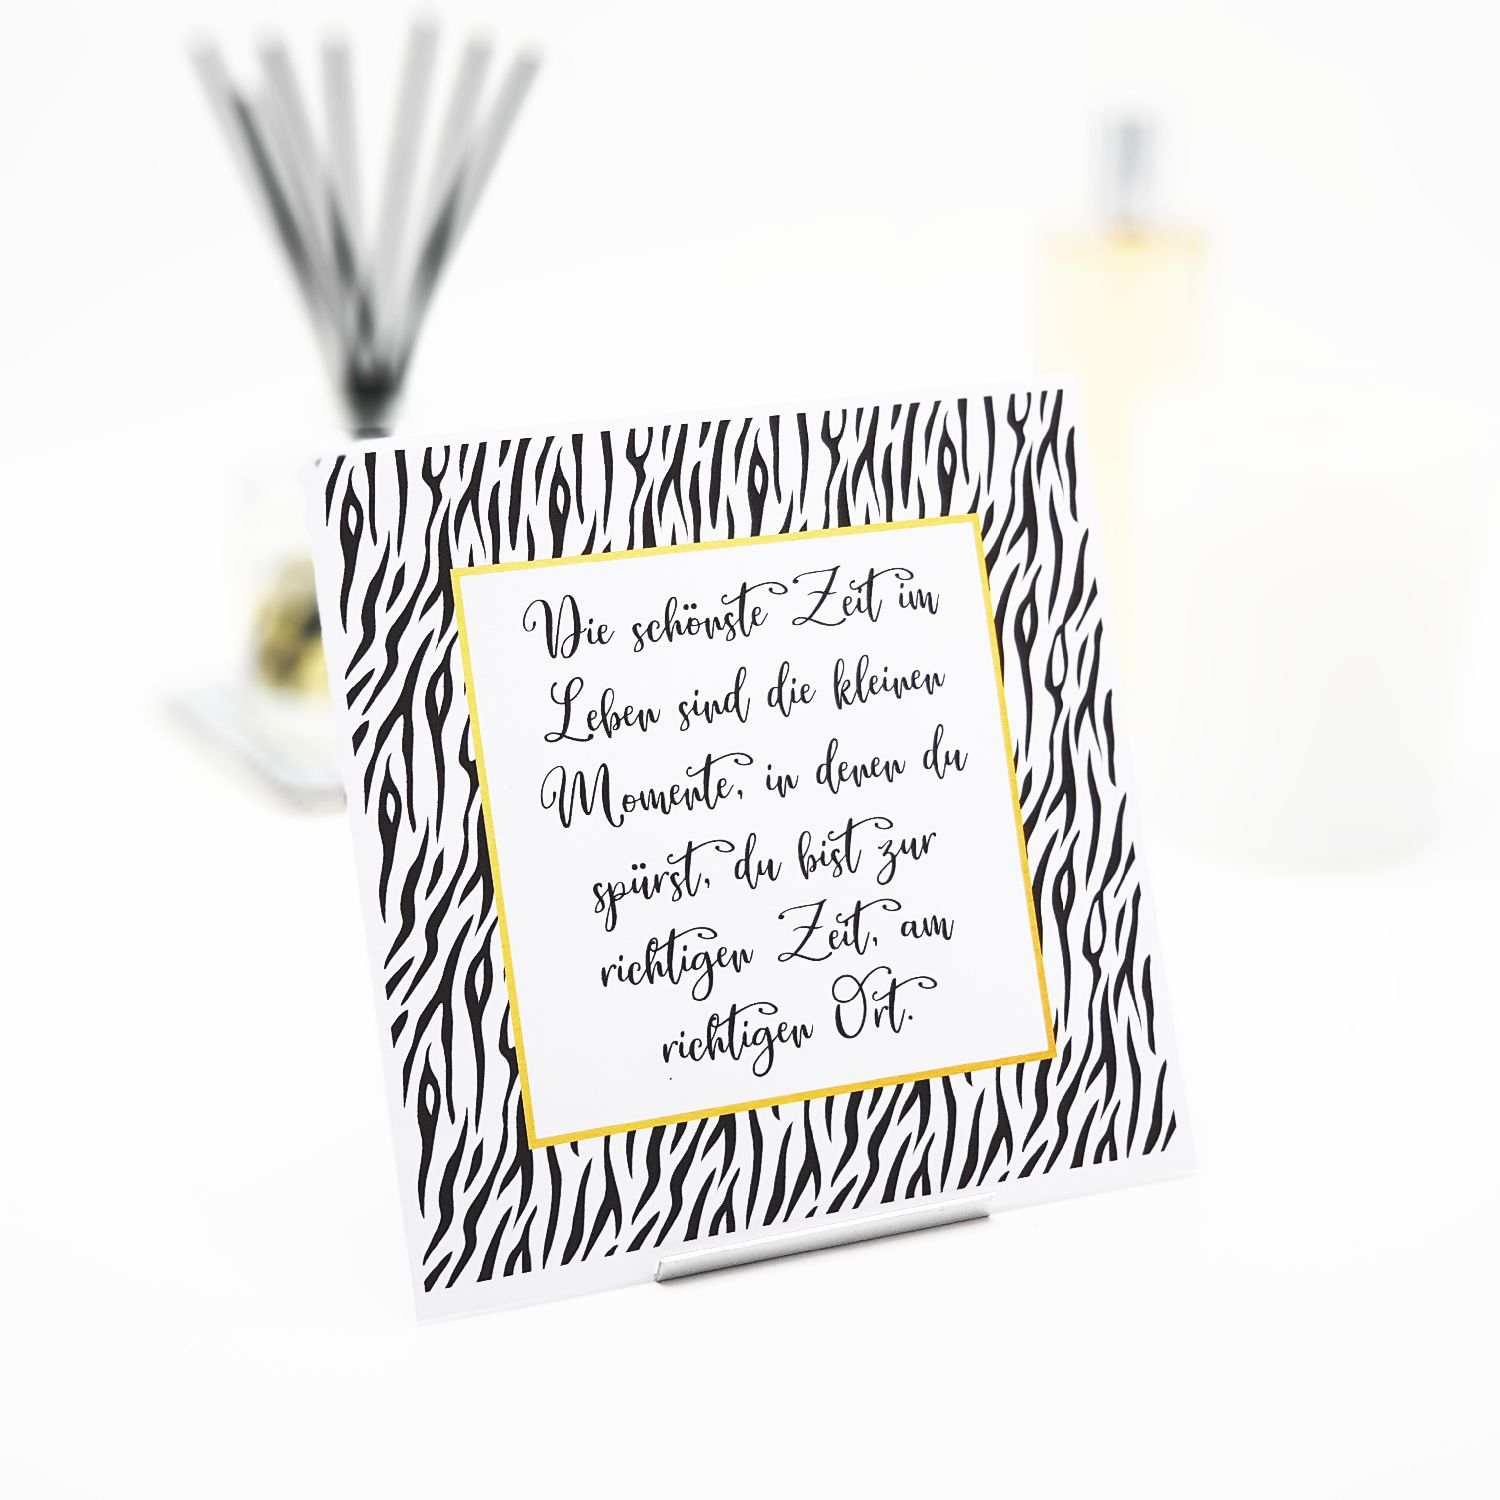 Die schönste Zeit im
Leben sind die kleinen
Momente, in denen du
spürst, du bist zur
richtigen Zeit, am
richtigen Ort.